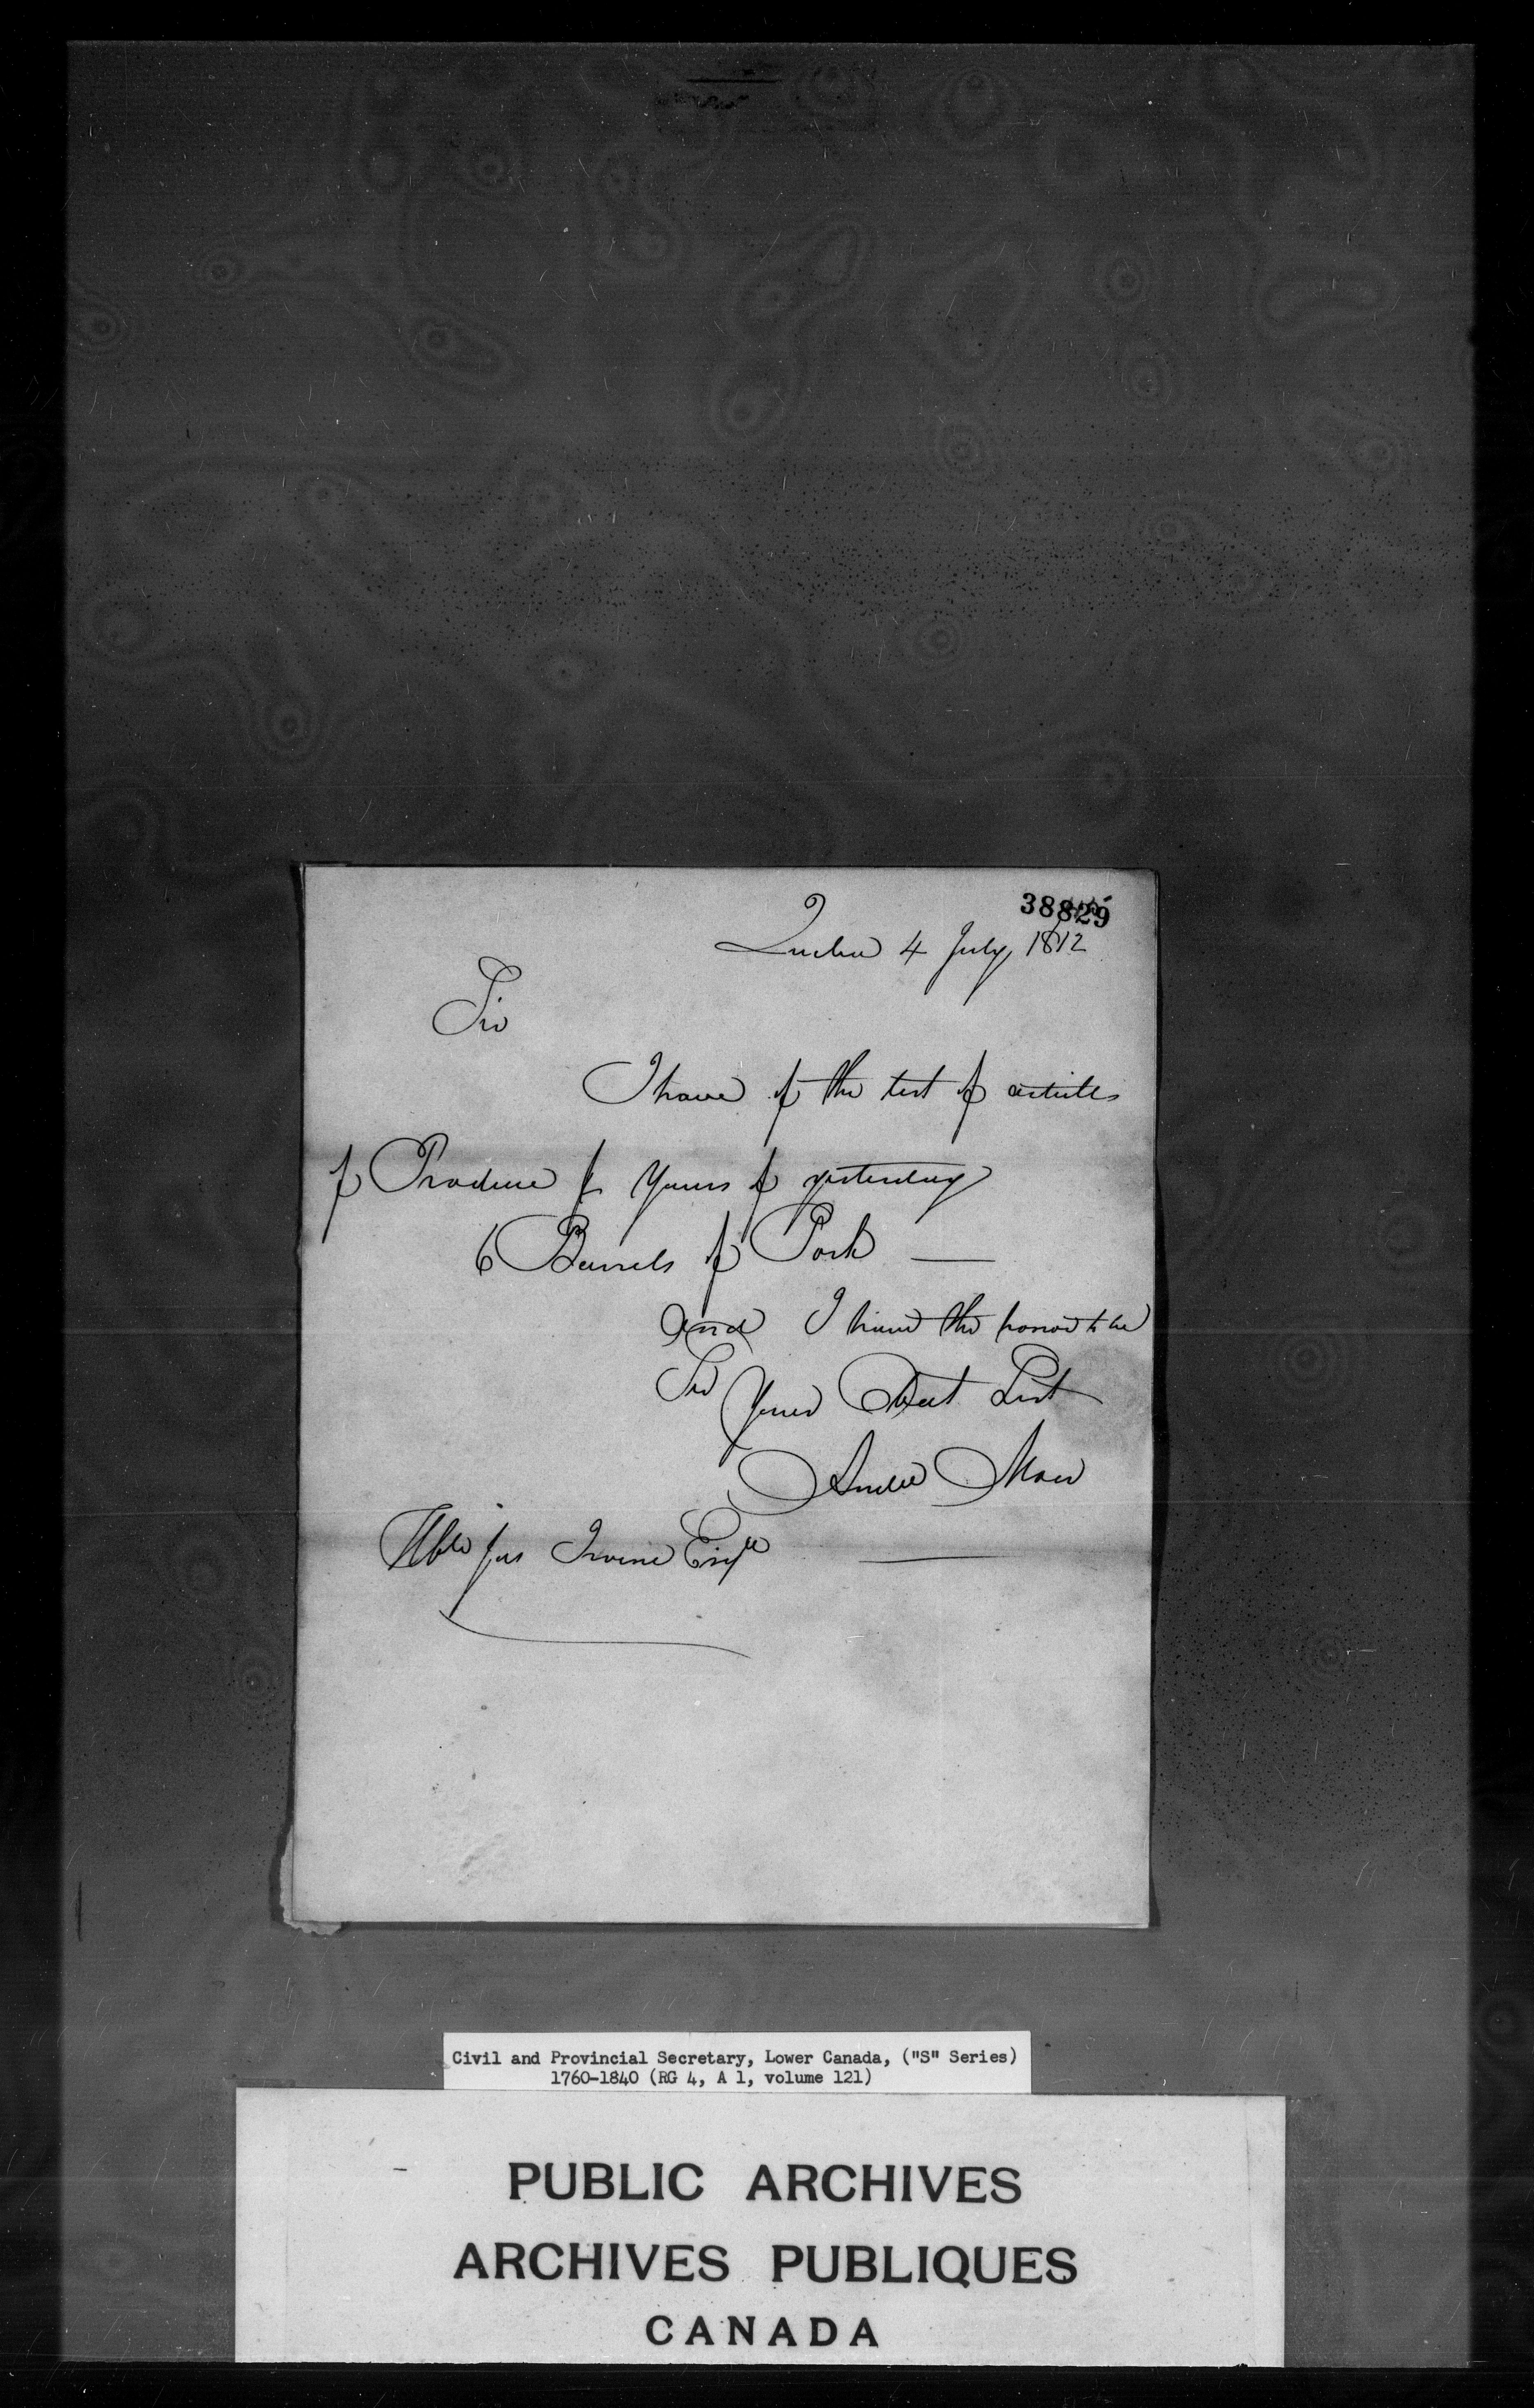 38829
Quebec 4 July 1812
Sir
I have of the list of articles
of Produce p Yours of yesterday
6 Barrels of Pork —
and I have the honor to be
Sir Your Obedt Sert
Honble Jas Irvine Esqre
Civil and Provincial Secretary, Lower Canada, ("S" Series)
1760-1840 (RG 4, A 1, volume 121)
PUBLIC ARCHIVES
ARCHIVES PUBLIQUES
CANADA